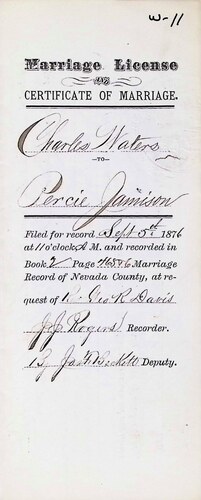 W-11
Marriage License
AND
CERTIFICATE OF MARRIAGE.
Charles Waters
—TO—
Percie Jamison
Filed for record Sept 5th 1876
at 11 o'clock A M. and recorded in
Book 2 Page Marriage
Record of Nevada County, at re-
quest of Geo R Davis
J J Rogers Recorder.
By Deputy.